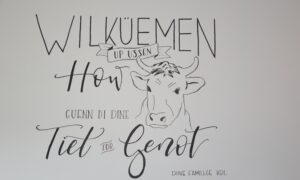 WILKÜEMEN
UP USSEN
How
GUENN DI DINE
Tiet TOR Genot
DINE FAMILGE